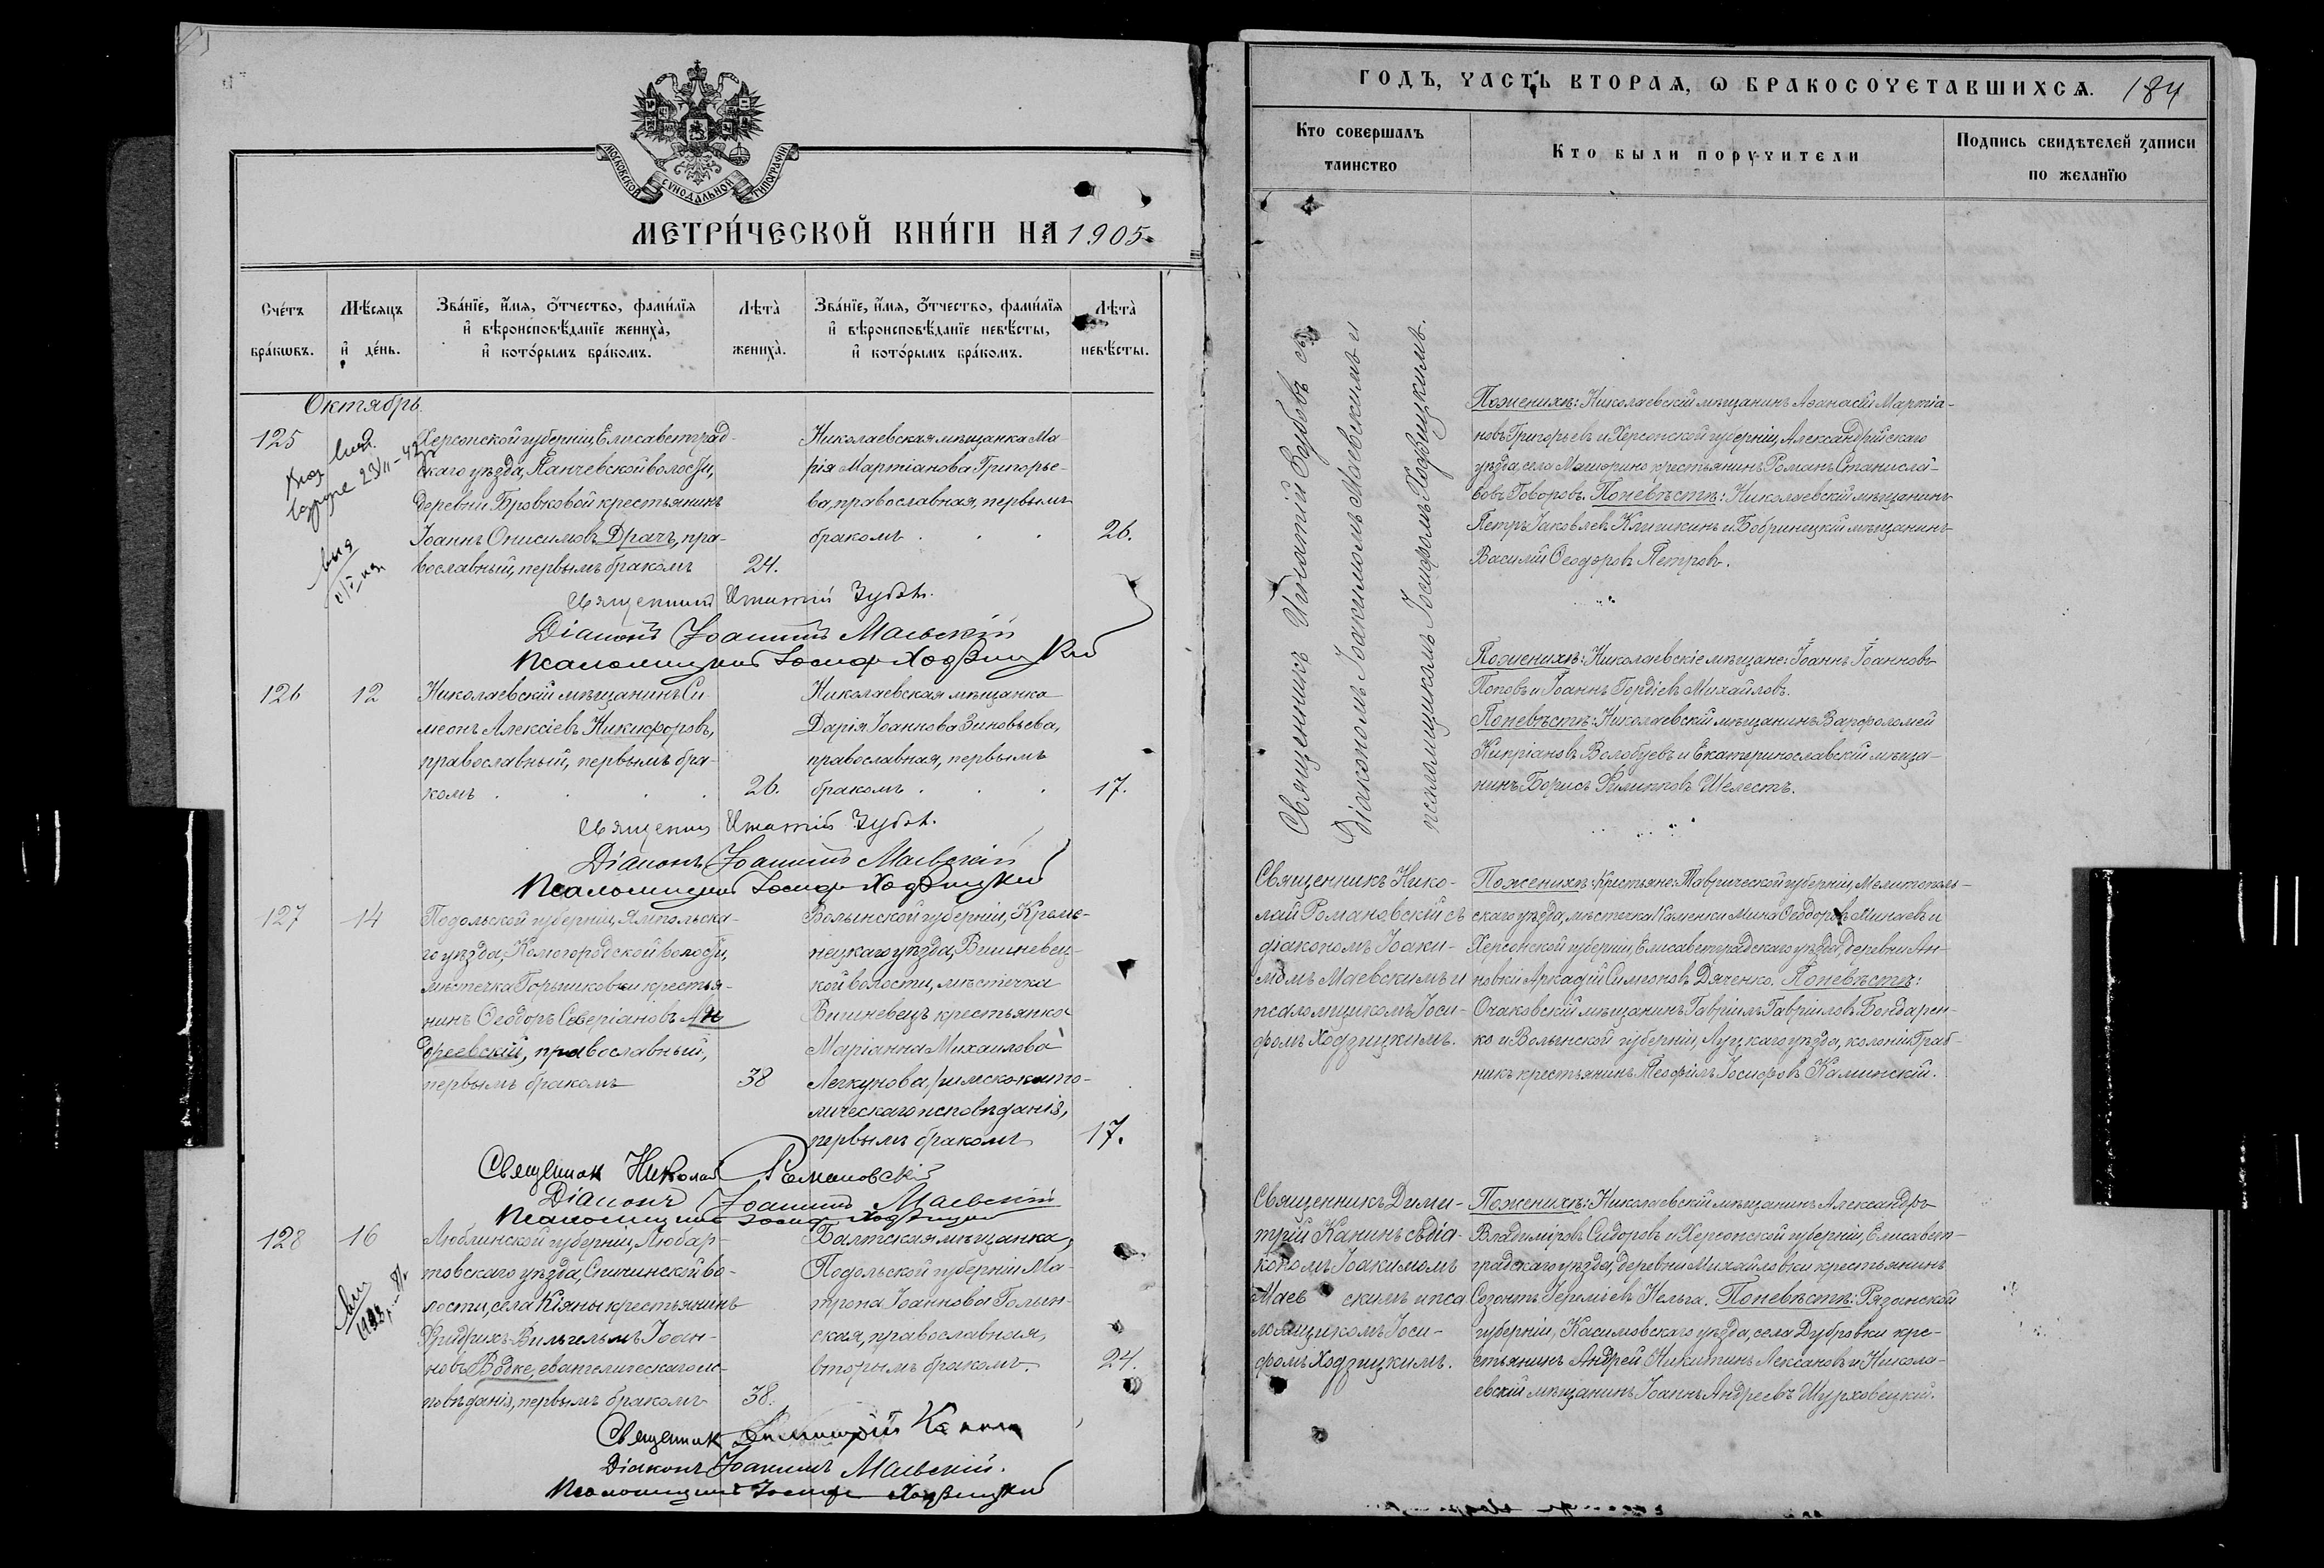 МОСКОВСКОЙ СѴНОДАЛЬНОЙ ТИПОГРАФІИ
МЕТРИ́ЧЕСКОЙ КНИ́ГИ НА 1905.
Счéтъ бра́кѡвъ.
Мѣ́сяцъ и҆ де́нь.
Зва́нїе, и҆́мя, ѻ҆́тчество, фами́лїя
и҆ вѣроисповѣ́данїе жениха̀,
и҆ кото́рымъ бра́комъ.
Лѣта̀ жениха̀.
Зва́нїе, и҆́мя, ѻ҆́тчество, фами́лїя
и҆ вѣроисповѣ́данїе невѣ́сты,
и҆ кото́рымъ бра́комъ.
Лѣта̀ невѣ́сты.
Октябрь.
125
Херсонской губерніи, Елисаветград-
скаго уѣзда, Панчевской волости,
деревни Бровковой крестьянинъ
Іоаннъ Онисимовъ Драчъ, пра-
вославный, первымъ бракомъ
24.
Николаевская мѣщанка Ма-
рія Мартіанова Григорье-
ва, православная, первымъ
бракомъ . . .
26.
Священникъ Игнатій Зубовъ.
Діаконъ Іоакимъ Маевскій
Псаломщикъ Іосифъ Ходзицкій
126
12
Николаевскій мѣщанинъ Си-
меонъ Алексіевъ Никифоровъ,
православный, первымъ бра-
комъ . . . .
26.
Николаевская мѣщанка
Дарія Іоаннова Зиновьева,
православная, первымъ
бракомъ . . .
17.
Священникъ Игнатій Зубовъ.
Діаконъ Іоакимъ Маевскій
Псаломщикъ Іосифъ Ходзицкій
127
14
Подольской губерніи, Ямпольска-
го уѣзда, Комогородской волости,
мѣстечка Горышковки крестья-
нинъ Ѳеодоръ Северіановъ Ан
дреевскій, православный,
первымъ бракомъ
38
Волынской губерніи, Креме-
нецкаго уѣзда, Вишневец-
кой волости, мѣстечка
Вишневецъ крестьянка
Маріанна Михаилова
Легкунова, римско-като-
лическаго исповѣданія,
первымъ бракомъ
17.
Священникъ Николай Романовскій
Діаконъ Іоакимъ Маевскій
Псаломщикъ Іосифъ Ходзицкій
128
16
Люблинской губерніи, Любар-
товскаго уѣзда, Спичинской во-
лости, села Кіяны крестьянинъ
Фридрихъ Вильгельмъ Іоан-
новъ Вдке, евангелическаго ис-
повѣданія, первымъ бракомъ
38.
Балтская мѣщанка,
Подольской губерніи Ма-
трона Іоаннова Голын-
ская, православная,
вторымъ бракомъ.
24.
Священникъ Димитрій Канинъ
Діаконъ Іоакимъ Маевскій.
Псаломщикъ Іосифъ Ходзицкій
ГОДЪ, ЧАСТЬ ВТОРАѦ, Ѡ БРАКОСОЧЕТАВШИХСѦ.
184
Кто совершалъ таинство
Кто были поручители
Подпись свидѣтелей записи по желанїю
Священникъ Игнатій Зубовъ съ
діакономъ Іоакимомъ Маевскимъ и
псаломщикомъ Іосифомъ Ходзицкимъ.
По женихѣ: Николаевскій мѣщанинъ Аѳанасій Мартіа-
новъ Григорьевъ и Херсонской губерніи, Александрійскаго
уѣзда, села Машорино крестьянинъ Романъ Станисла-
вовъ Говоровъ. По невѣстѣ: Николаевскій мѣщанинъ
Петръ Іаковлевъ Клюшкинъ и Бобринецкій мѣщанинъ
Василій Ѳеодоровъ Петровъ.
По женихѣ: Николаевскіе мѣщане: Іоаннъ Іоанновъ
Поповъ и Іоаннъ Гордіевъ Михайловъ.
По невѣстѣ: Николаевскій мѣщанинъ Варфоломей
Кипріановъ Волобуевъ и Екатеринославскій мѣща-
нинъ Борисъ Филипповъ Шелестъ.
Священникъ Нико-
лай Романовскій съ
діакономъ Іоаки-
момъ Маевскимъ и
псаломщикомъ Іоси-
фомъ Ходзицкимъ.
По женихѣ: Крестьяне: Таврической губерніи, Мелитополь-
скаго уѣзда, мѣстечка Каменки Мина Ѳеодоровъ Минаевъ и
Херсонской губерніи, Елисаветградскаго уѣзда, деревни Ан-
новки Аркадій Симоновъ Дяченко. По невѣстѣ:
Очаковскій мѣщанинъ Гавріилъ Гавріиловъ Бондарен-
ко и Волынской губерніи, Луцкаго уѣзда, колоніи Граб-
никъ крестьянинъ Теофилъ Іосифовъ Каминскій.
Священникъ Дими-
трій Канинъ съ діа-
кономъ Іоакимомъ
Маевскимъ и пса
ломщикомъ Іоси-
фомъ Ходзицкимъ.
По женихѣ: Николаевскій мѣщанинъ Александръ
Владиміровъ Сидоровъ и Херсонской губерніи, Елисавет-
градскаго уѣзда, деревни Михайловки крестьянинъ
Созонтъ Іереміевъ Нельга. По невѣстѣ: Рязанской
губерніи, Касимовскаго уѣзда, села Дубровки кре-
стьянинъ Андрей Никитинъ Алексановъ и Никола-
евскій мѣщанинъ Іоаннъ Андреевъ Шурховецкій.